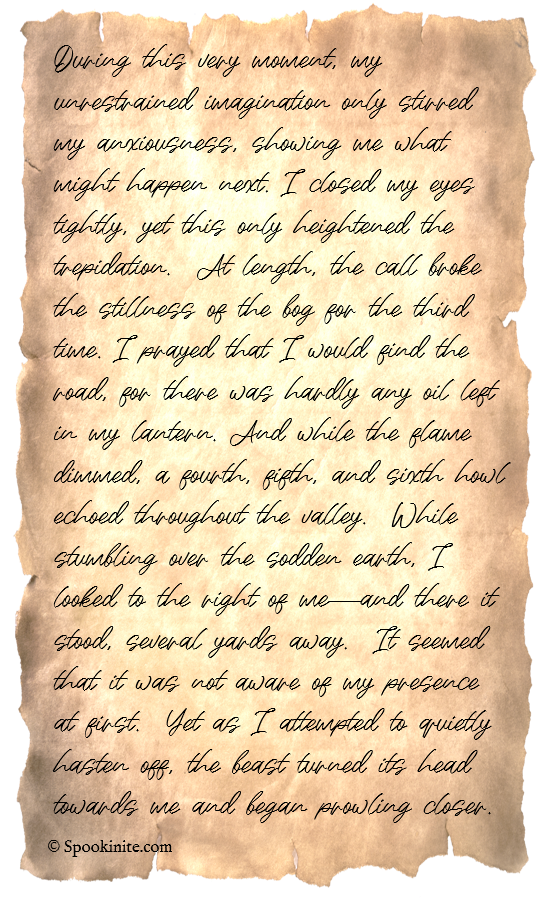 During this very moment, my
unrestrained imagination only stirred
my anxiousness, showing me what
might happen next. I closed my eyes
tightly, yet this only heightened the
trepidation. At length, the call broke
the stillness of the bog for the third
time. I prayed that I would find the
road, for there was hardly any oil left
in my lantern. And while the flame
dimmed, a fourth, fifth, and sixth howl
echoed throughout the valley. While
stumbling over the sodden earth, I
looked to the right of me—and there it
stood, several yards away. It seemed
that it was not aware of my presence
at first. Yet as I attempted to quietly
hasten off, the beast turned its head
towards me and began prowling closer.
© Spookinite.com